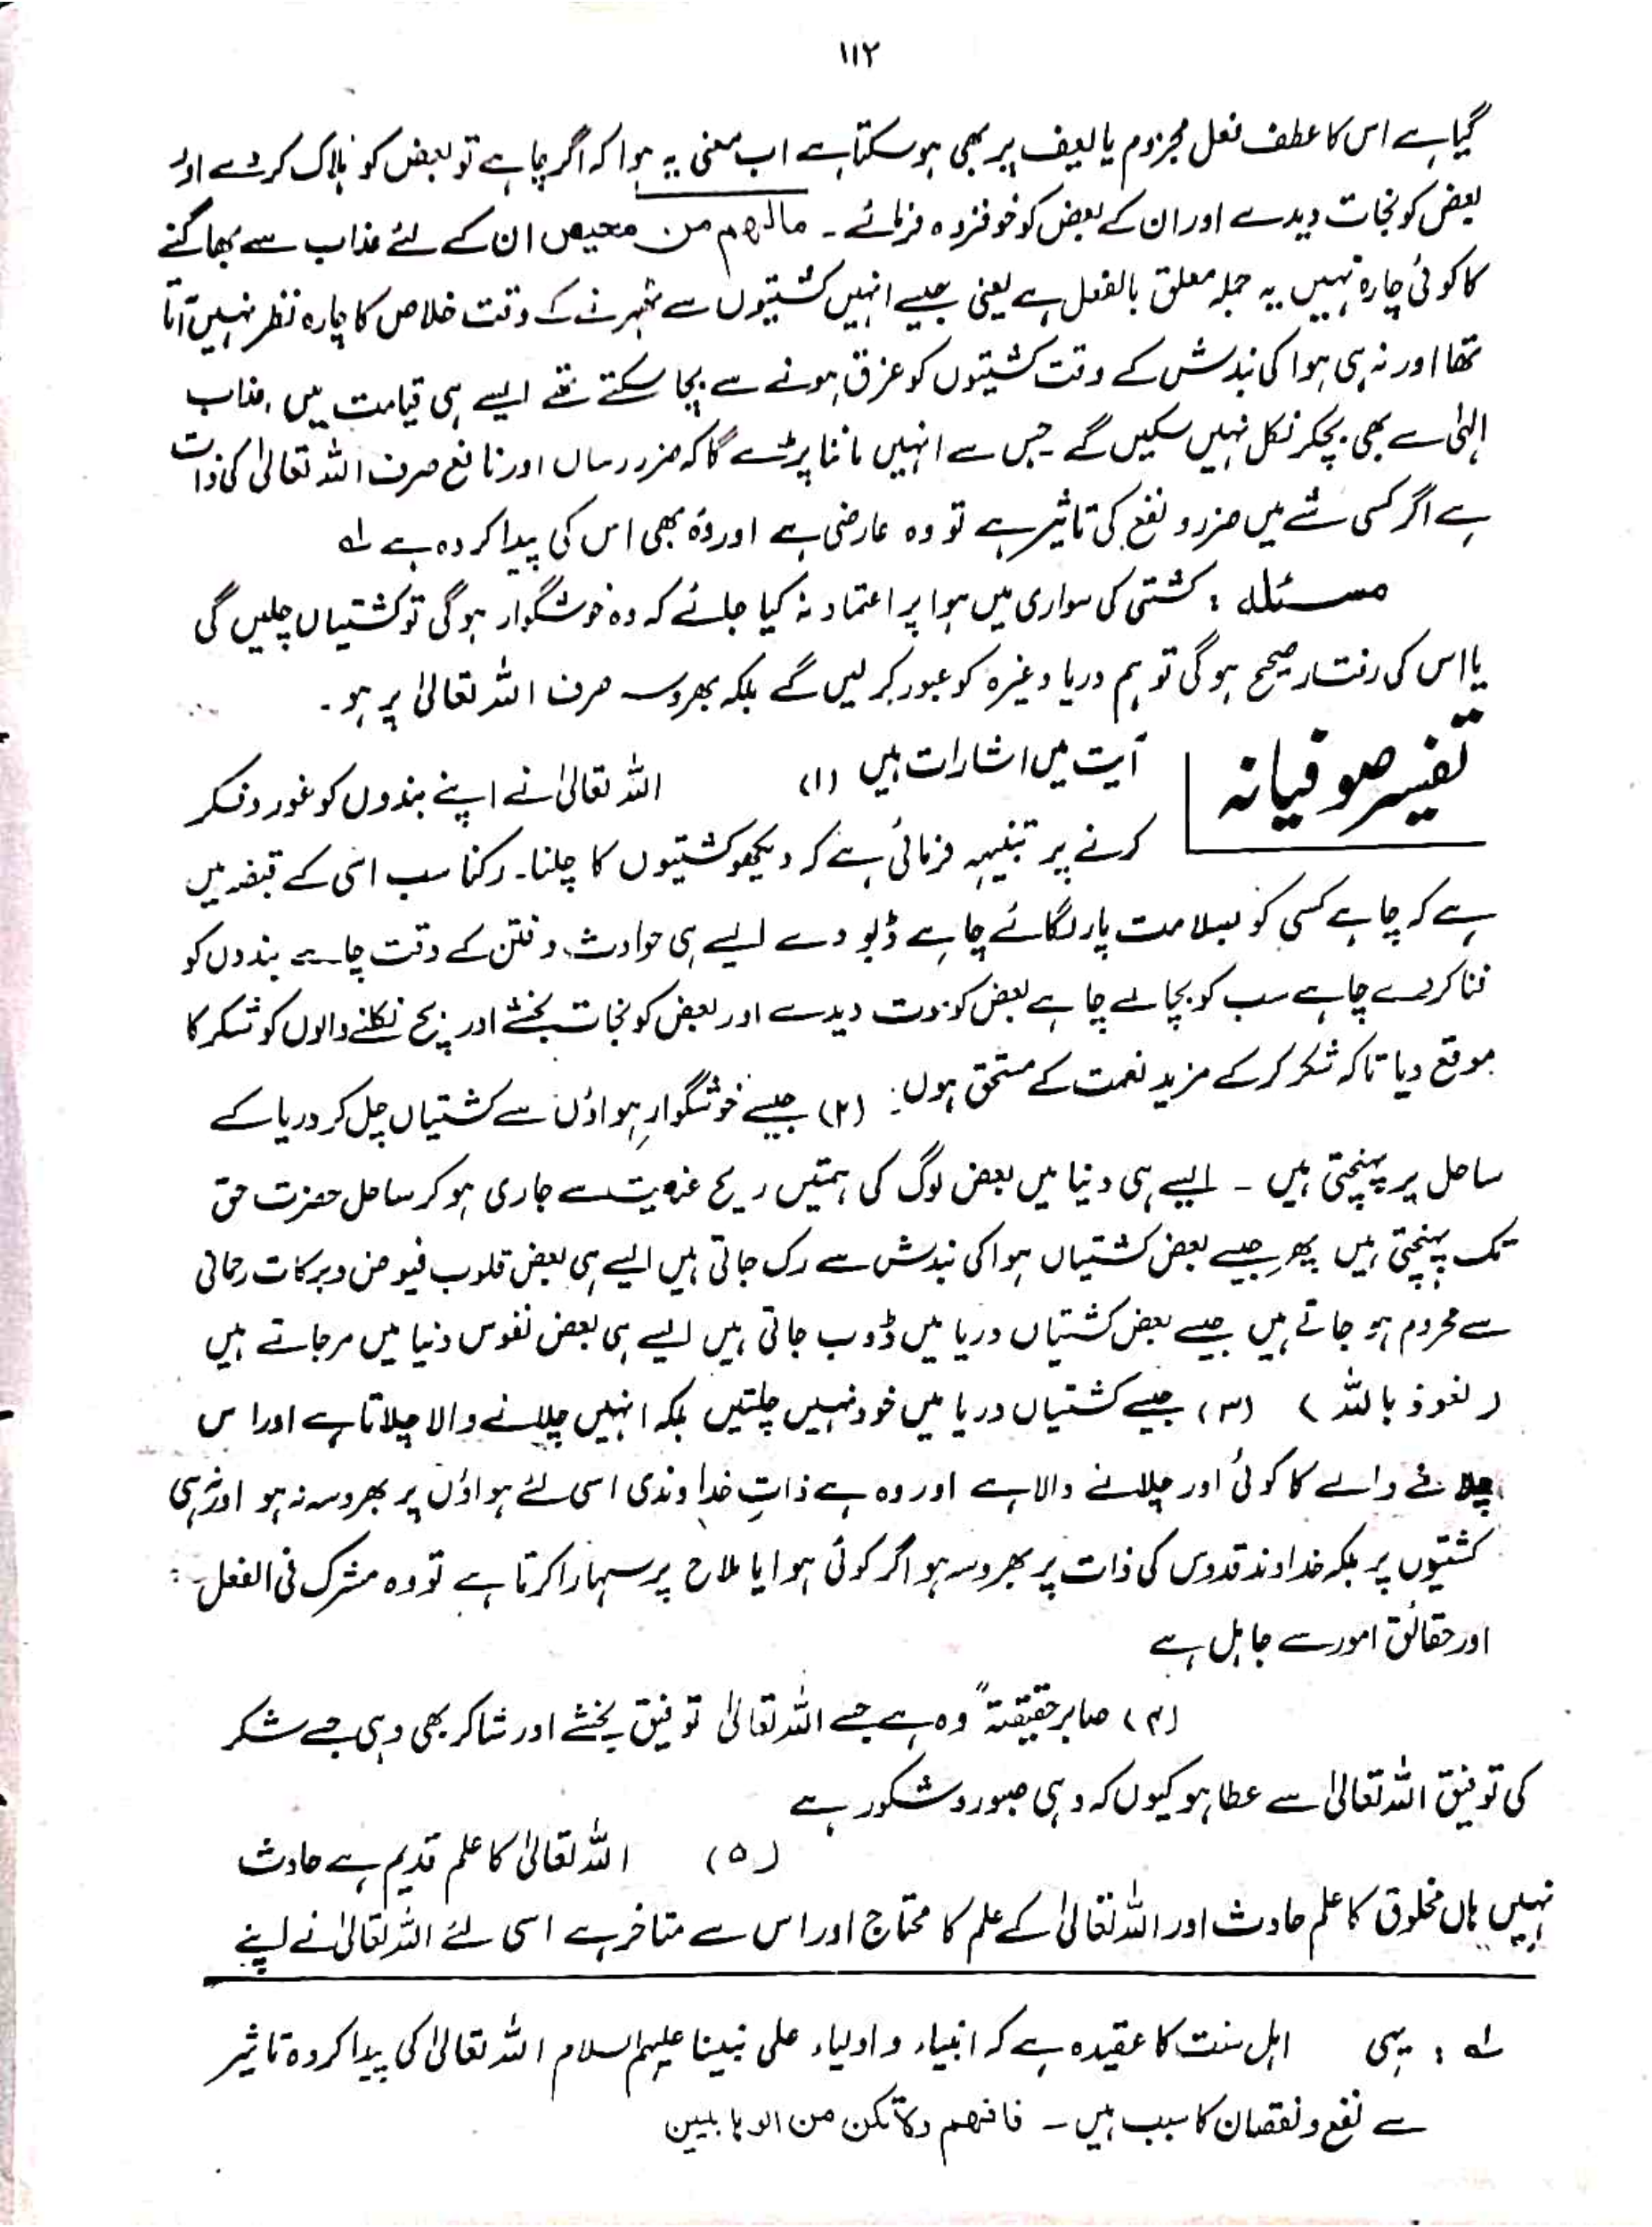 ۱۱۲
گیا ہے اس کا عطف فعل مجزوم یا یعف پر بھی ہو سکتا ہے اب معنی یہ ہوا کہ اگر چاہے تو بعض کو ہلاک کر دے اور
بعض کو نجات دیدے اور ان کے بعض کو خوفزدہ فرمائے ۔ مالھم من محیص ان کے لئے عذاب سے بھاگنے
کا کوئی چارہ نہیں یہ جملہ معلق بالفعل ہے یعنی جیسے انہیں کشتیوں سے ٹھہرنے کے وقت خلاص کا چارہ نظر نہیں آتا
تھا اور نہ ہی ہوا کی بندش کے وقت کشتیوں کو غرق ہونے سے بچا سکتے تھے ایسے ہی قیامت میں عذاب
الہٰی سے بھی بچکر نکل نہیں سکیں گے جس سے انہیں ماننا پڑے گا کہ ضرر رساں اور نافع صرف اللہ تعالیٰ کی ذات
ہے اگر کسی شے میں ضرر و نفع کی تاثیر ہے تو وہ عارضی ہے اور وُہ بھی اس کی پیدا کردہ ہے لہ
مسئلہ : کشتی کی سواری میں ہوا پر اعتماد نہ کیا جائے کہ وہ خوشگوار ہوگی تو کشتیاں چلیں گی
یا اس کی رفتار صحیح ہوگی تو ہم دریا وغیرہ کو عبور کر لیں گے بلکہ بھروسہ صرف اللہ تعالیٰ پر ہو ۔
تفسیر صوفیانہ
آیت میں اشارات ہیں (۱) اللہ تعالیٰ نے اپنے بندوں کو غور و فکر
کرنے پر تنبیہہ فرمائی ہے کہ دیکھو کشتیوں کا چلنا ۔ رکنا سب اسی کے قبضہ میں
ہے کہ چاہے کسی کو بسلامت پار لگائے چاہے ڈبو دے ایسے ہی حوادث و فتن کے وقت چاہے بندوں کو
فنا کردے چاہے سب کو بچالے چاہے بعض کو موت دیدے اور بعض کو نجات بخشے اور بچ نکلنے والوں کو شکر کا
موقع دیا تاکہ شکر کر کے مزید نعمت کے مستحق ہوں : (۲) جیسے خوشگوار ہواؤں سے کشتیاں چل کر دریا کے
ساحل پر پہنچتی ہیں ۔ ایسے ہی دنیا میں بعض لوگ کی ہمتیں ریح عنایت سے جاری ہو کر ساحل حضرت حق
تک پہنچتی ہیں پھر جیسے بعض کشتیاں ہوا کی بندش سے رک جاتی ہیں ایسے ہی بعض قلوب فیوض و برکات رحمانی
سے محروم ہو جاتے ہیں جیسے بعض کشتیاں دریا میں ڈوب جاتی ہیں ایسے ہی بعض نفوس دنیا میں مر جاتے ہیں
( نعوذ باللہ ) (۳) جیسے کشتیاں دریا میں خود نہیں چلتیں بلکہ انہیں چلانے والا چلاتا ہے اور اس
چلانے والے کا کوئی اور چلانے والا ہے اور وہ ہے ذاتِ خداوندی اسی لئے ہواؤں پر بھروسہ نہ ہو اور نہ ہی
کشتیوں پر بلکہ خداوند قدوس کی ذات پر بھروسہ ہو اگر کوئی ہوا یا ملاح پر سہارا کرتا ہے تو وہ مشرک فی الفعل :
اور حقائق امور سے جاہل ہے
(۴) صابر حقیقتہً وہ ہے جسے اللہ تعالیٰ توفیق بخشے اور شاکر بھی وہی جسے شکر
کی توفیق اللہ تعالیٰ سے عطا ہو کیوں کہ وہی صبور و شکور ہے
(۵) اللہ تعالیٰ کا علم قدیم ہے حادث
نہیں ہاں مخلوق کا علم حادث اور اللہ تعالیٰ کے علم کا محتاج اور اس سے متاخر ہے اسی لئے اللہ تعالیٰ نے اپنے
لہ : یہی اہل سنت کا عقیدہ ہے کہ انبیاء و اولیاء علی نبینا علیہم السلام اللہ تعالیٰ کی پیدا کردہ تاثیر
سے نفع و نقصان کا سبب ہیں ۔ فافھم ولا تکن من الوہابیین